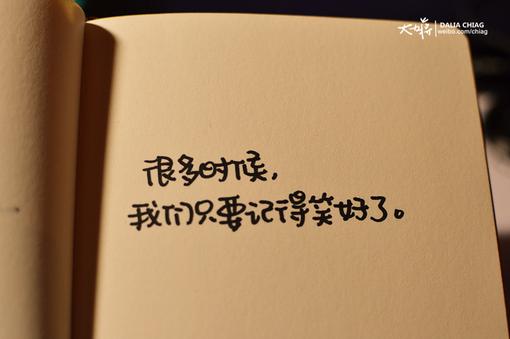 DALIA CHIAG
weibo.com/chiag
很多时候,
我们只要记得笑好了。